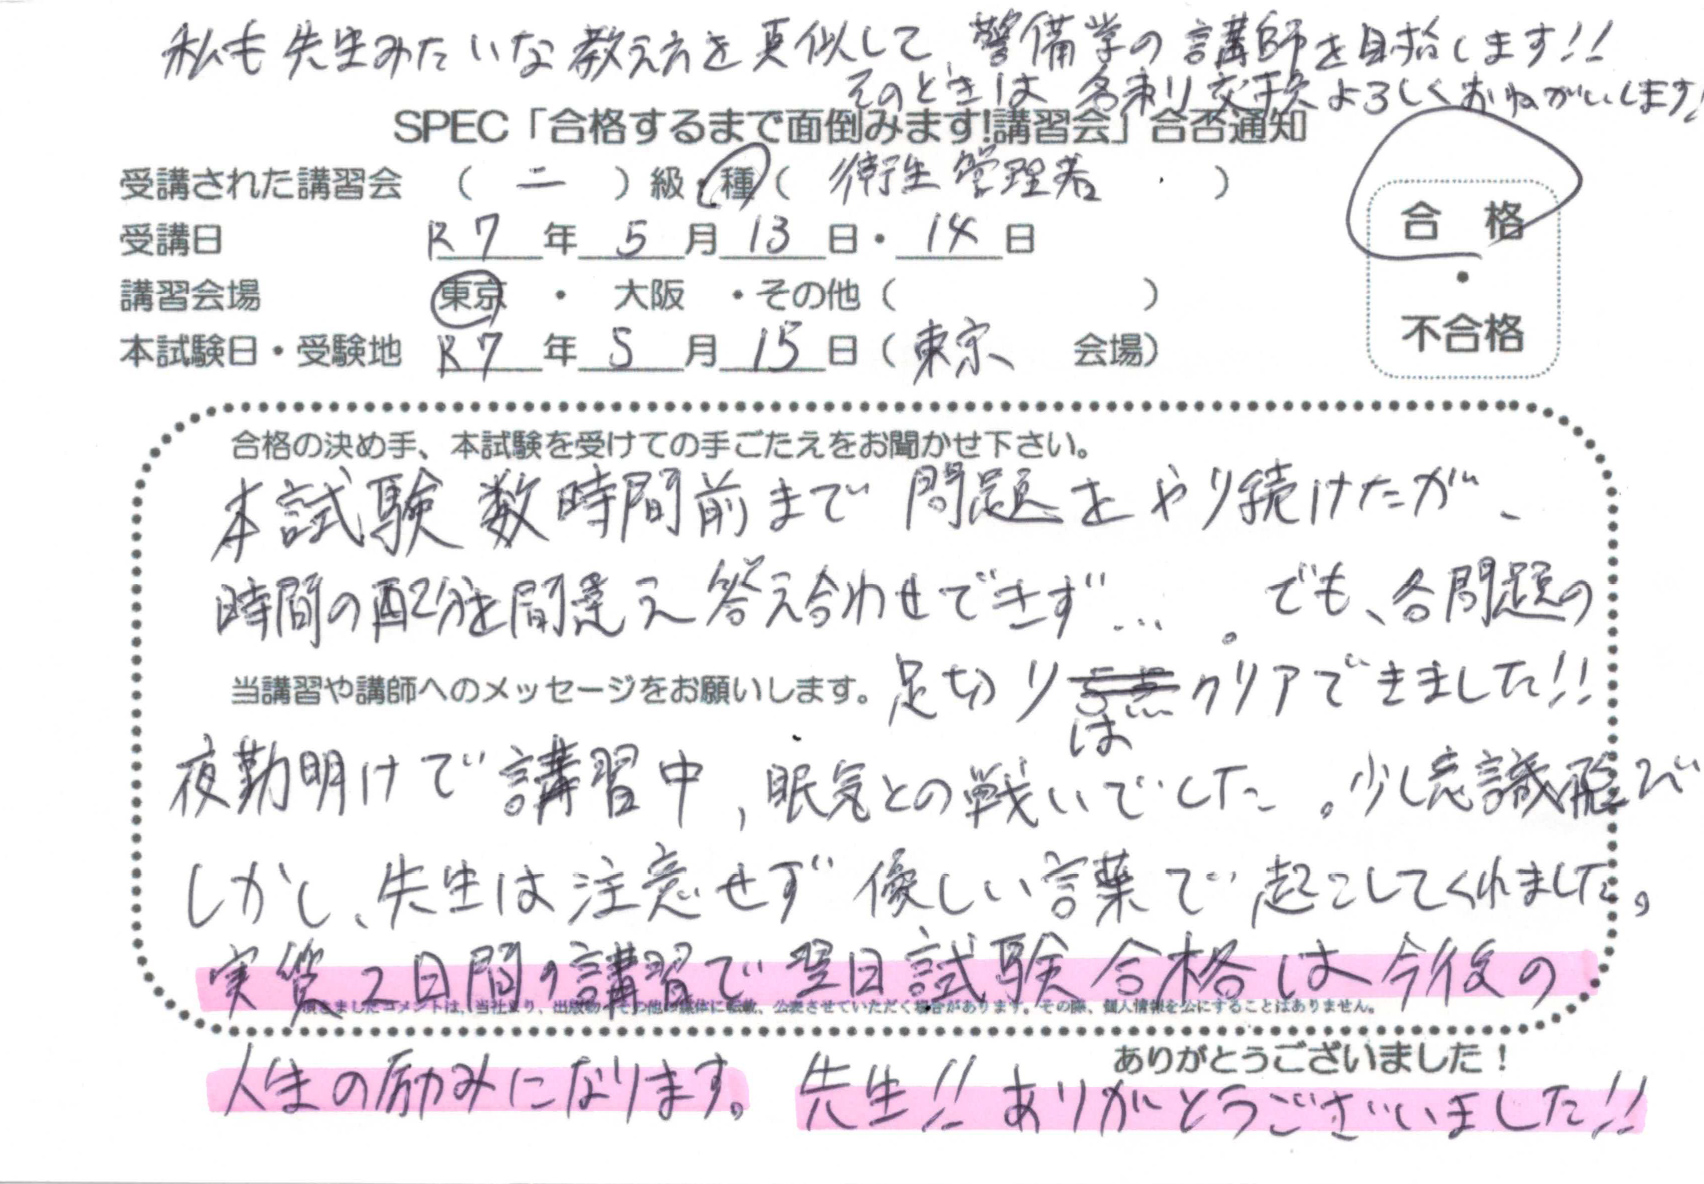 私も先生みたいな教え方を真似して、警備学の講師を目指します!!
そのときは名刺交換よろしくおねがいします!
SPEC「合格するまで面倒みます!講習会」合否通知
受講された講習会 （ 二 ）級・種（ 衛生管理者 ）
合 格
受講日 R7年 5月 13日・14日
講習会場 東京 ・ 大阪 ・その他（ ）
・
不合格
本試験日・受験地 R7年 5月 15日（東京 会場）
合格の決め手、本試験を受けての手ごたえをお聞かせ下さい。
本試験数時間前まで問題をやり続けたが、
時間の配分を間違え答え合わせできず…。でも、各問題の
当講習や講師へのメッセージをお願いします。
足切りはクリアできました!!
夜勤明けで講習中,眠気との戦いでした。少し意識飛び
しかし、先生は注意せず優しい言葉で起こしてくれました。
実質2日間の講習で翌日試験合格は今後の
頂きましたコメントは、当社より、出版物・その他の媒体に転載、公表させていただく場合があります。その際、個人情報を公にすることはありません。
ありがとうございました！
人生の励みになります。 先生!! ありがとうございました!!